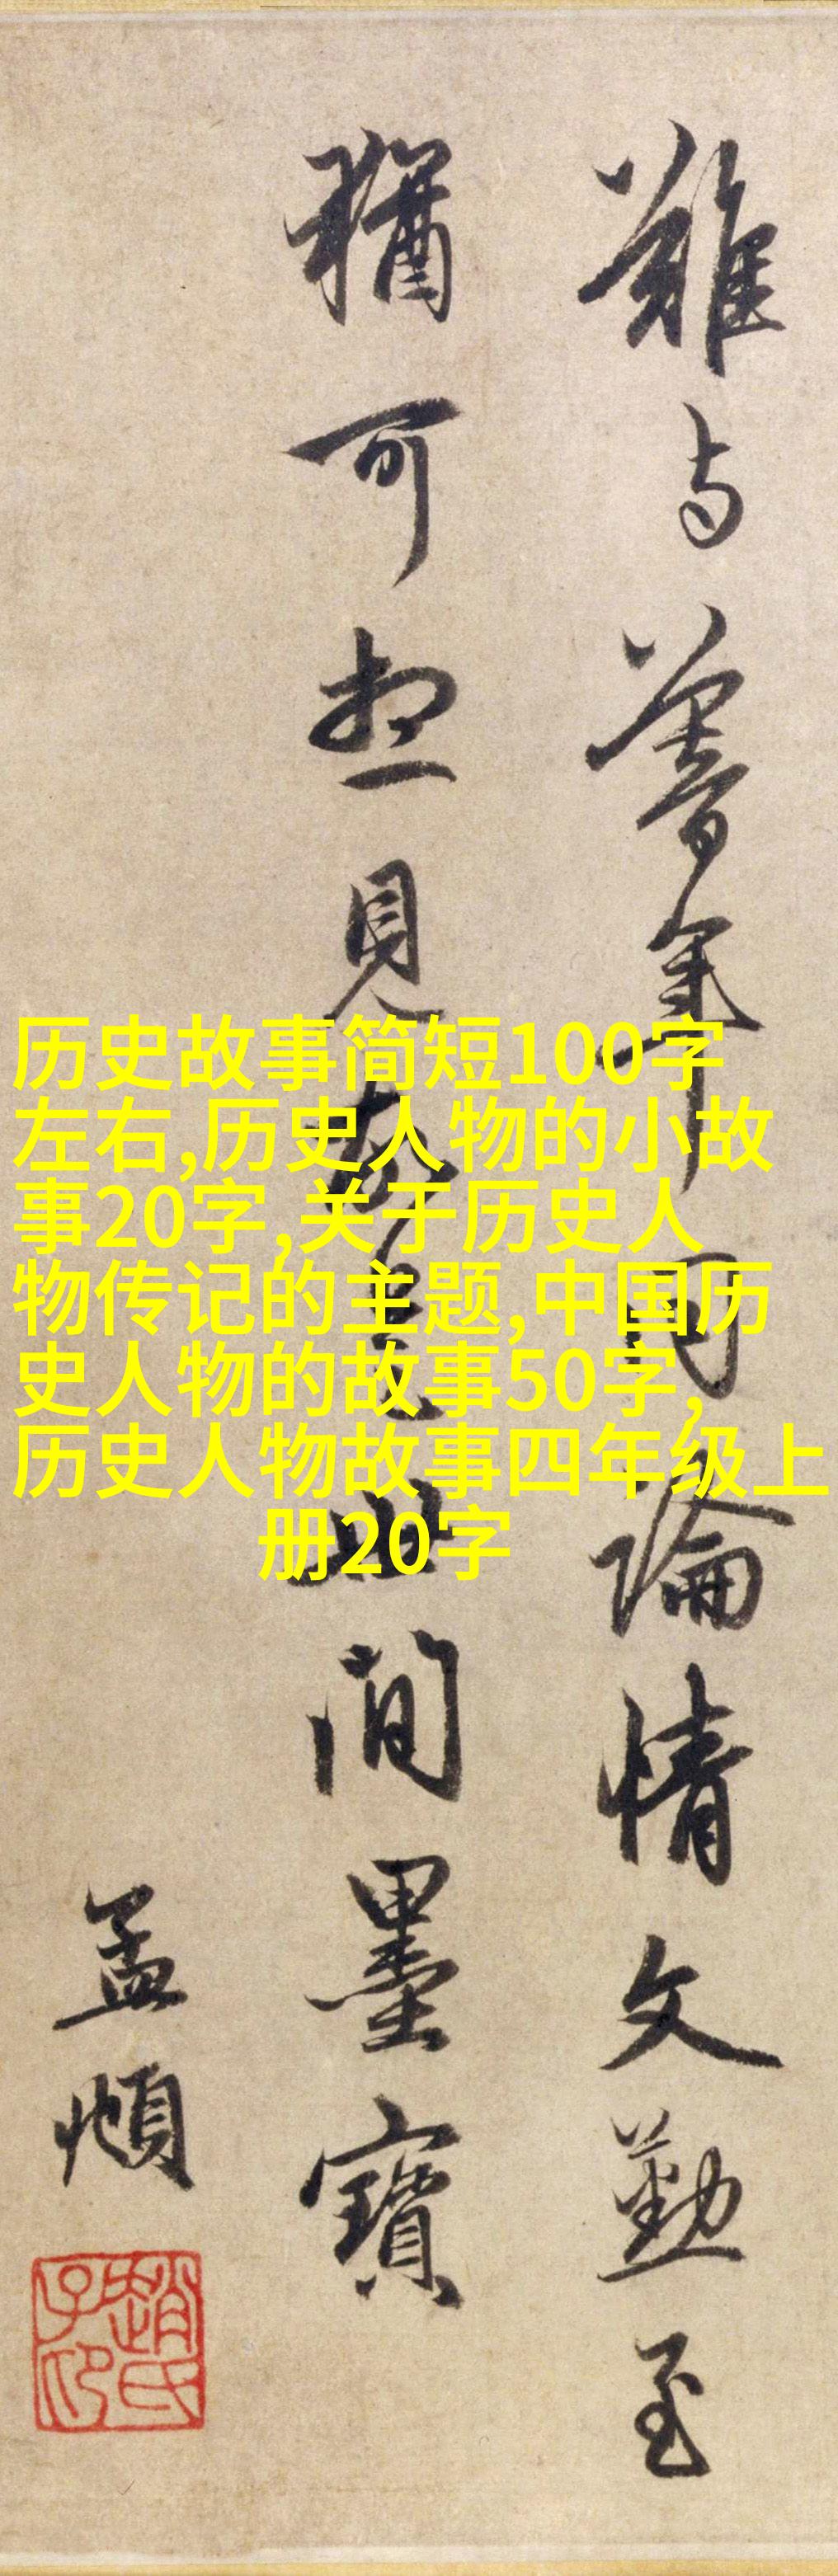 難与並年同論情文勤至
猶可想見故是世間墨寶
孟頫
趙氏子印
历史故事简短100字
左右,历史人物的小故
事20字,关于历史人
物传记的主题,中国历
史人物的故事50字,
历史人物故事四年级上
册20字